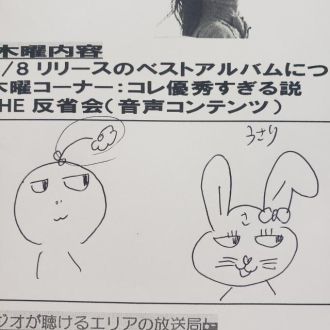 木曜内容
/8リリースのベストアルバムにつ
木曜コーナー:コレ優秀すぎる説
HE 反省会(音声コンテンツ)
うさり
さ
ジオが聴けるエリアの放送局